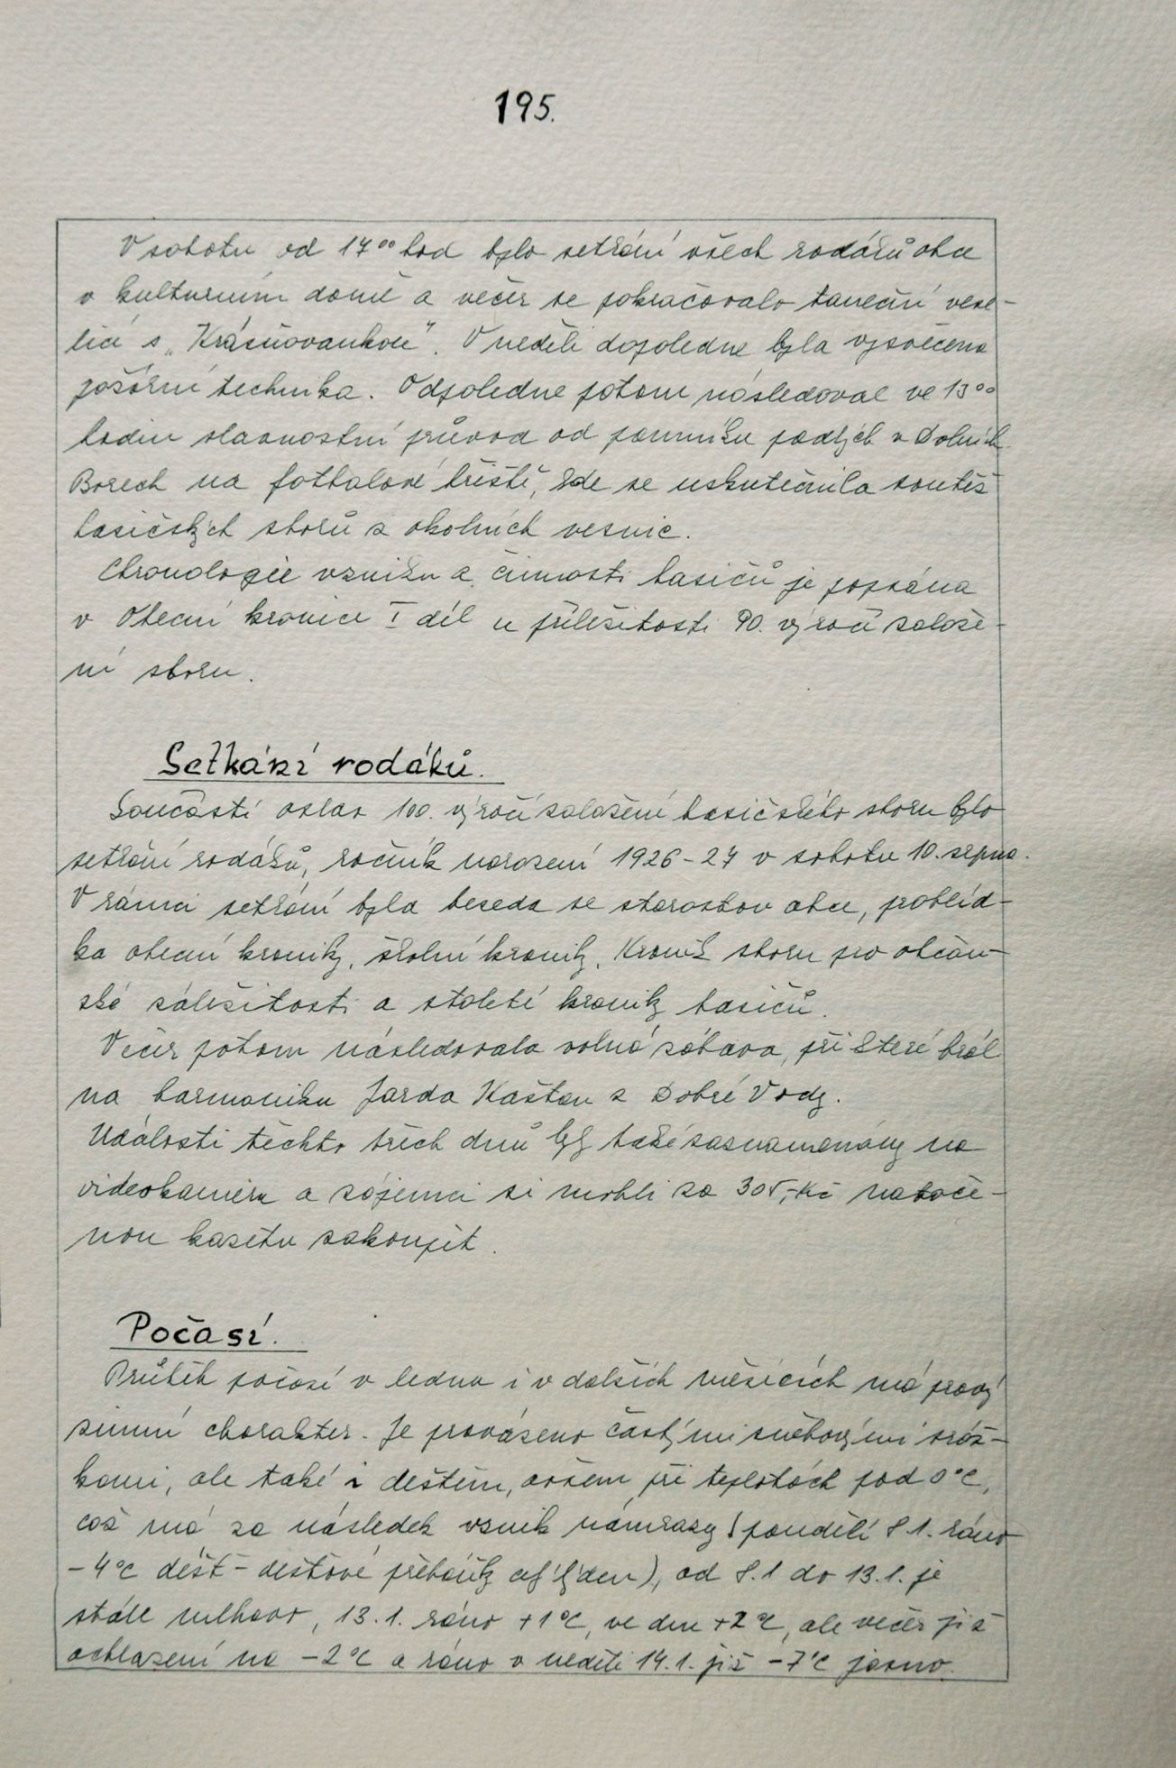 195.
V sobotu od 17⁰⁰ hod bylo setkání všech rodáků obce
v kulturním domě a večer se pokračovalo taneční vese-
licí s „Krásňovankou“. V neděli dopoledne byla vysvěcena
požární technika. Odpoledne potom následoval ve 13⁰⁰
hodin slavnostní průvod od pomníku padlých v Dolních
Borech na fotbalové hřiště, kde se uskutečnila soutěž
hasičských sborů z okolních vesnic.
Chronologie vzniku a činnosti hasičů je popsána
v Obecní kronice I díl u příležitosti 90. výročí založe-
ní sboru.
Setkání rodáků.
Součástí oslav 100. výročí založení hasičského sboru bylo
setkání rodáků, ročník narození 1926-27 v sobotu 10. srpna.
V rámci setkání byla beseda se starostou obce, prohlíd-
ka obecní kroniky, školní kroniky, Kronik sboru pro občan-
ské záležitosti a stoleté kroniky hasičů.
Večer potom následovala volná zábava, při které hrál
na harmoniku Jarda Kaštan z Dobré Vody.
Události těchto třech dnů byly také zaznamenány na
videokameru a zájemci si mohli za 305,-Kč natoče-
nou kasetu zakoupit.
Počasí.
Průběh počasí v lednu i v dalších měsících má pravý
zimní charakter. Je provázeno častými sněhovými sráž-
kami, ale také i deštěm, ovšem při teplotách pod 0°C,
což má za následek vznik námrazy (pondělí 8.1. ráno
-4°C déšť - dešťové přeháňky celý den), od 8.1 do 13.1. je
stále mlhavo, 13.1. ráno +1°C, ve dne +2°C, ale večer již
ochlazení na -2°C a ráno v neděli 14.1. již -7°C jasno.